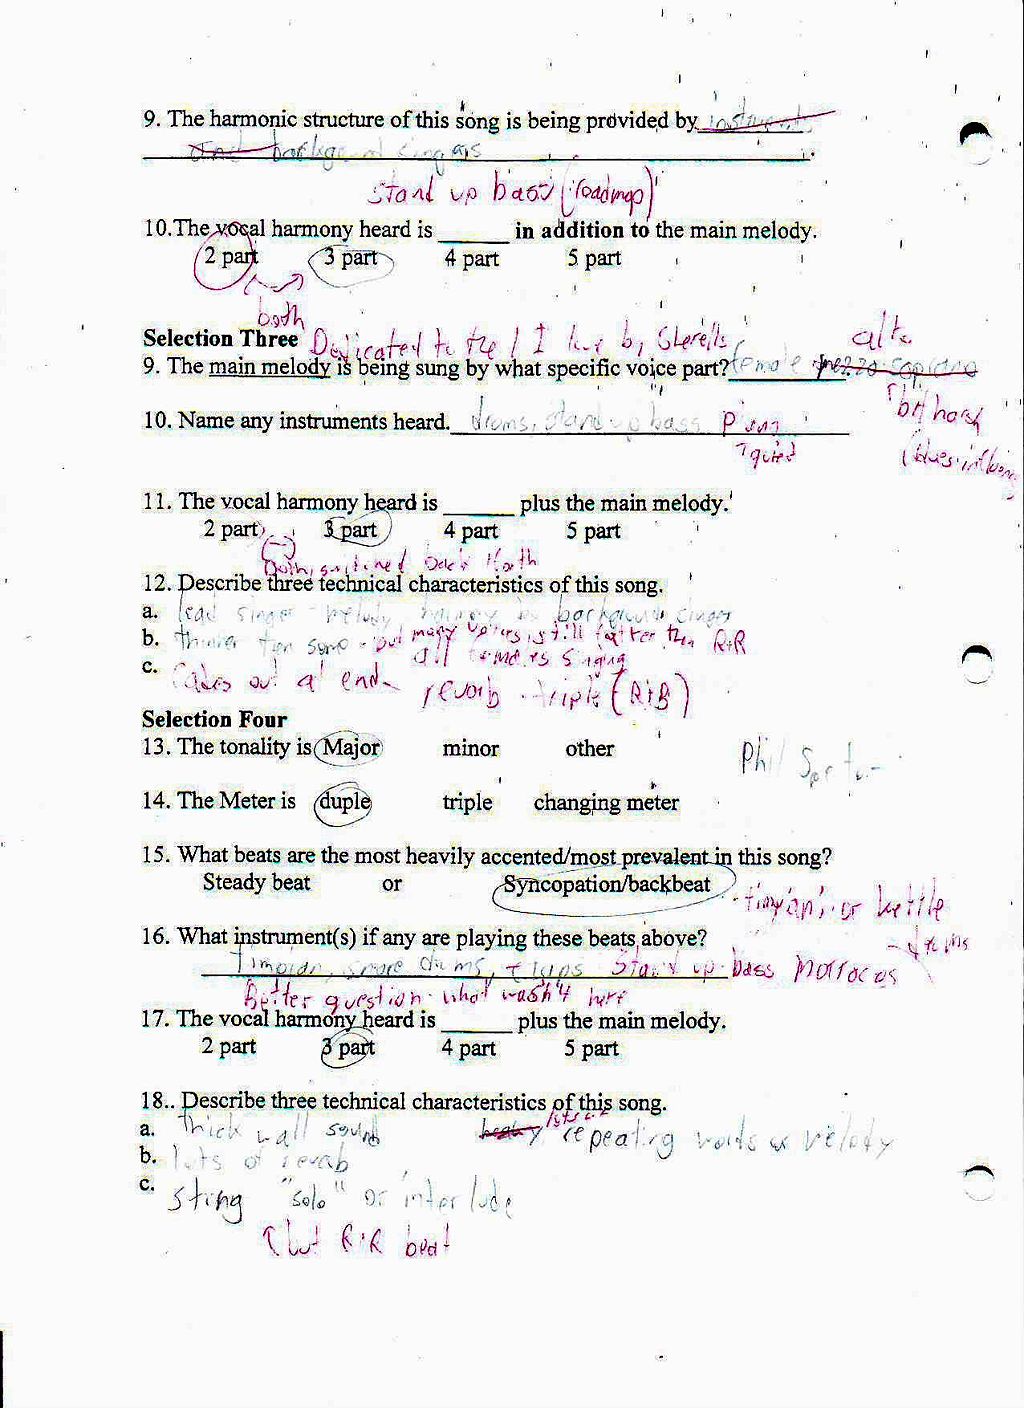 9. The harmonic structure of this song is being provided by instruments
and background singers
stand up bass ("roadmap")
10.The vocal harmony heard is ______ in addition to the main melody.
2 part 3 part 4 part 5 part
both
Selection Three Dedicated to the 1 I love by Sherells
alto
9. The main melody is being sung by what specific voice part? female mezzo soprano
bit harsh
10. Name any instruments heard. drums, stand up bass Piano
quiet
11. The vocal harmony heard is ______ plus the main melody.
2 part 3 part 4 part 5 part
back forth
12. Describe three technical characteristics of this song.
a. lead singer melody background singer
b. thinner than some but many voices, still fatter than R+R
all females singing
c. fades out at end reverb triple (R+B)
Selection Four
13. The tonality is Major minor other
Phil Spector
14. The Meter is duple triple changing meter
15. What beats are the most heavily accented/most prevalent in this song?
Steady beat or Syncopation/backbeat
timpani or kettle
drums
16. What instrument(s) if any are playing these beats above?
Timpani, snare drums, + claps Stand up bass Marracas
Better question what wasn't here
17. The vocal harmony heard is ______ plus the main melody.
2 part 3 part 4 part 5 part
18.. Describe three technical characteristics of this song.
a. thick wall sound repeating words & melody
b. lots of revab
c. String "solo" or interlude
but R+R beat